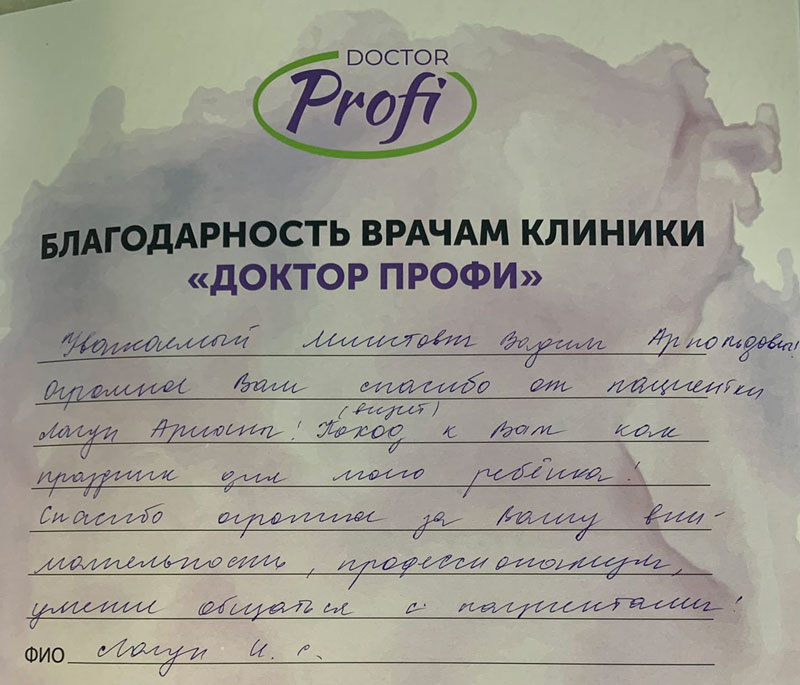 DOCTOR
Profi
БЛАГОДАРНОСТЬ ВРАЧАМ КЛИНИКИ
«ДОКТОР ПРОФИ»
Уважаемый Вадим Арнольдович!
Огромное Вам спасибо от пациентки
Лагун Арианы! Поход к Вам как
(визит)
праздник для моего ребёнка!
Спасибо огромное за Вашу вни-
мательность, профессионализм,
умение общаться с пациентами!
ФИО Лагун И. С.